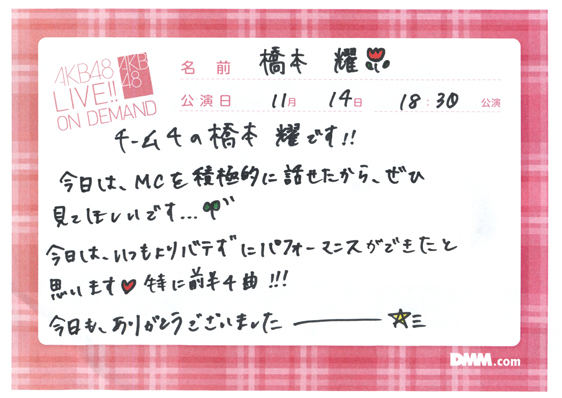 AKB48
LIVE!!
ON DEMAND
AKB
48
名前 橋本 耀
公演日 11月 14日 18:30 公演
チーム4の橋本 耀です!!
今日は、MCを積極的に話せたから、ぜひ
見てほしいです...
今日は、いつもよりバテずにパフォーマンスができたと
思います♥ 特に前半4曲!!!
今日も、ありがとうございました――☆三
DMM.com